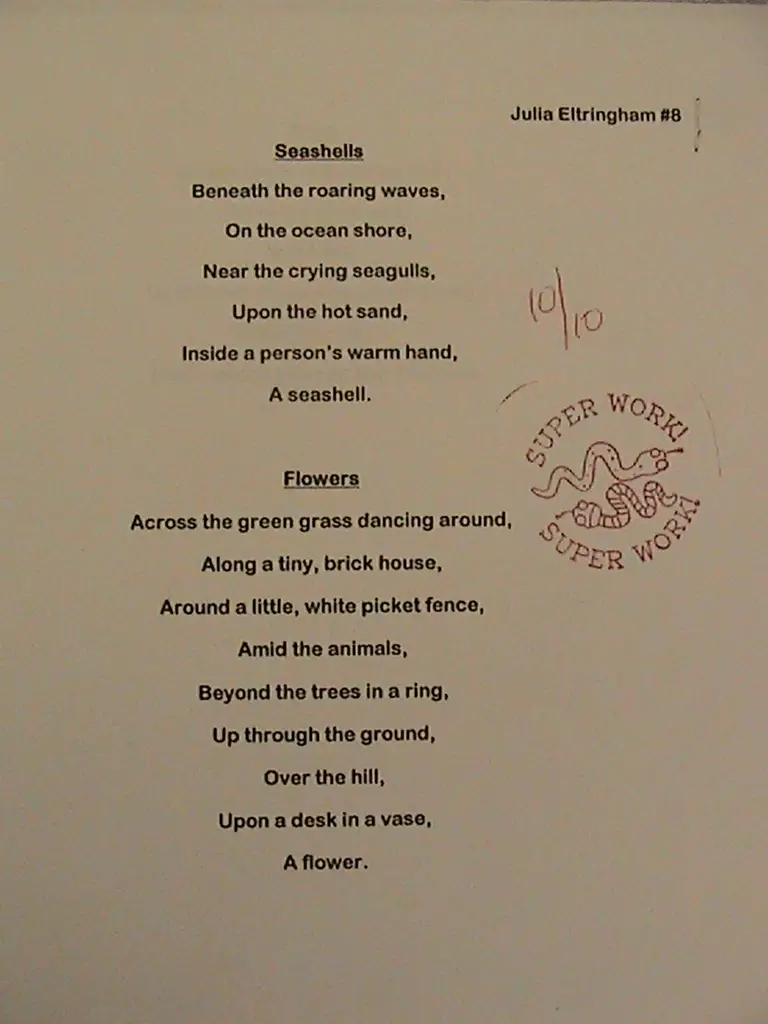 Julia Eltringham #8
Seashells
Beneath the roaring waves,
On the ocean shore,
Near the crying seagulls,
Upon the hot sand,
Inside a person's warm hand,
A seashell.
10/10
SUPER WORK!
SUPER WORK!
Flowers
Across the green grass dancing around,
Along a tiny, brick house,
Around a little, white picket fence,
Amid the animals,
Beyond the trees in a ring,
Up through the ground,
Over the hill,
Upon a desk in a vase,
A flower.